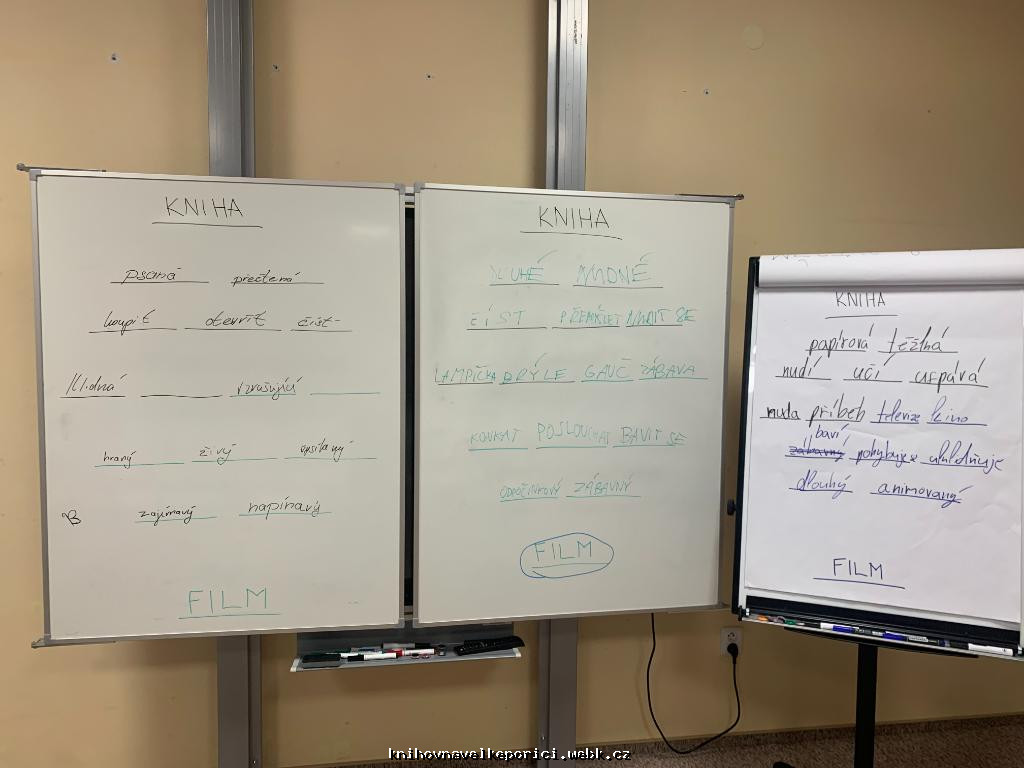 KNIHA
psaná přečtená
koupit otevřít číst
klidná vzrušující
hraný živý
zajímavý napínavý
FILM
KNIHA
DLUHÉ NUDNÉ
ČÍST PŘEMÝŠLET NUDIT SE
LAMPIČKA BRÝLE GAUČ ZÁBAVA
KOUKAT POSLOUCHAT BAVIT SE
ODPOČINKOVÝ ZÁBAVNÝ
FILM
KNIHA
papírová těžká
nudí učí uspává
nuda příběh televize kino
baví
zábavný pohybuje uklidňuje
dlouhý animovaný
FILM
knihovnavelkeporici.webk.cz